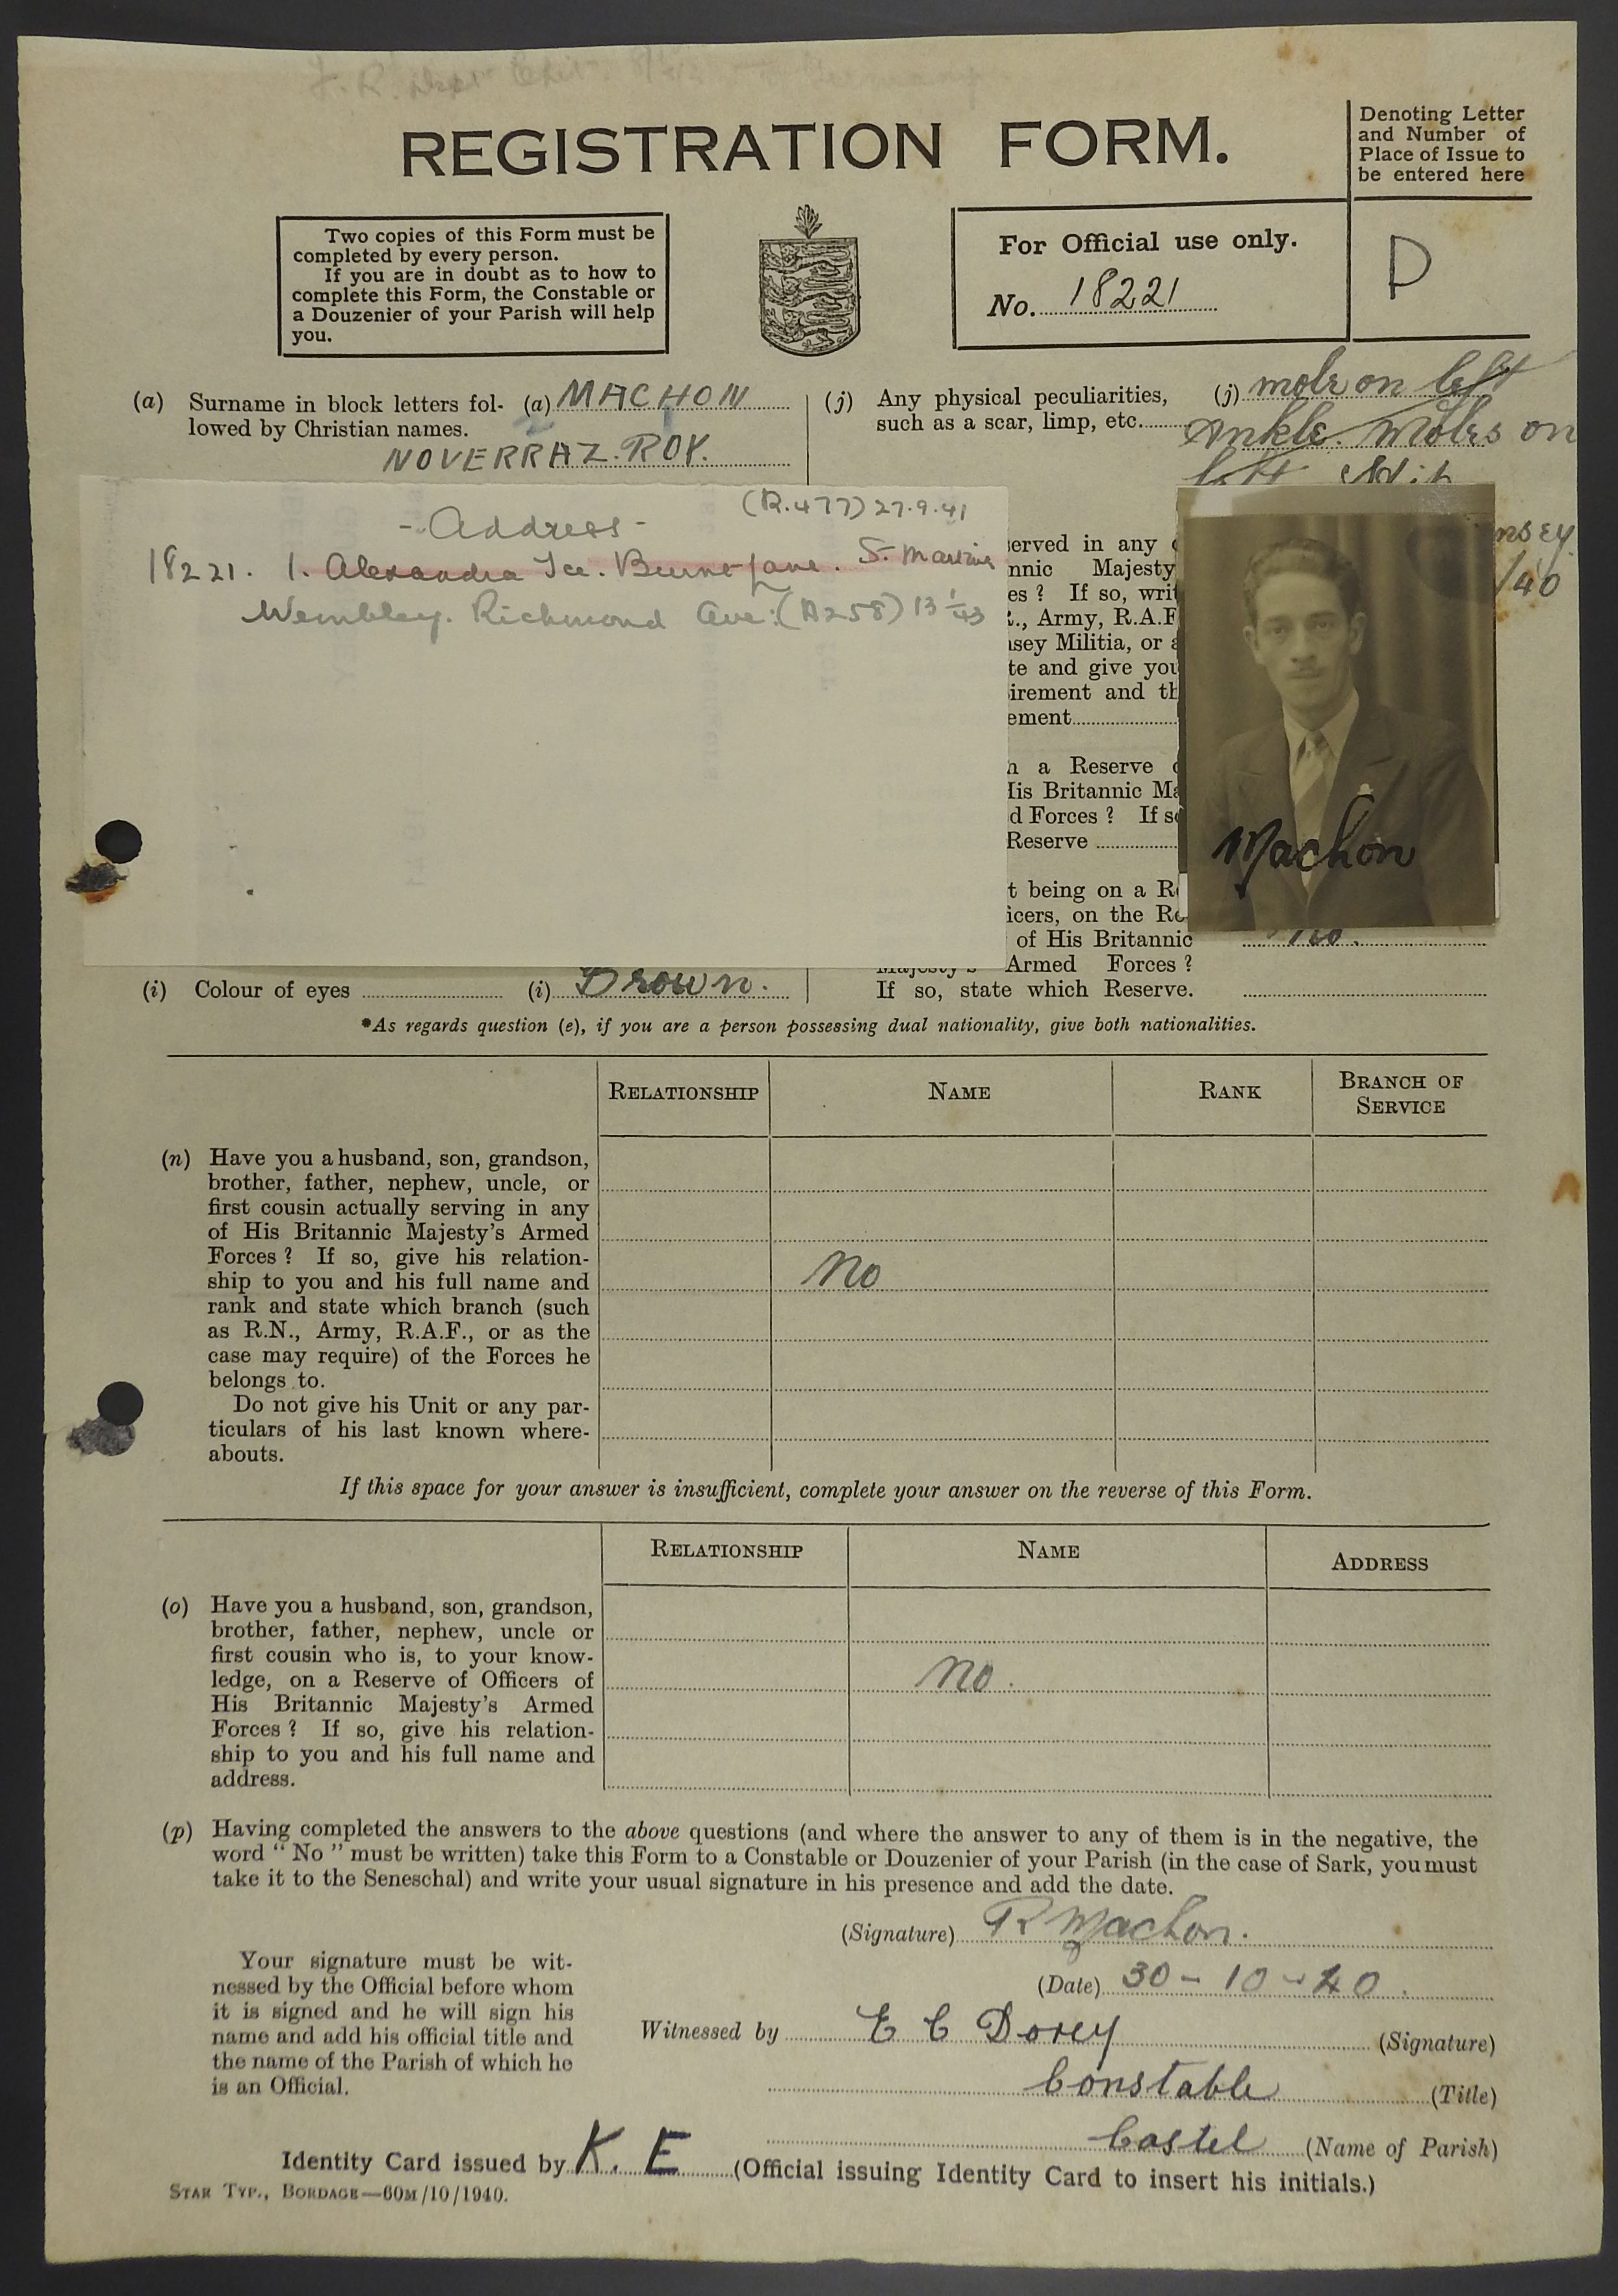 REGISTRATION FORM.
Denoting Letter
and Number of
Place of Issue to
be entered here
Two copies of this Form must be
completed by every person.
If you are in doubt as to how to
complete this Form, the Constable or
a Douzenier of your Parish will help
you.
For Official use only.
No. 18221
D
(a) Surname in block letters fol- (a) MACHON
lowed by Christian names.
NOVERRAZ. ROY.
(j) Any physical peculiarities, (j) mole on left
such as a scar, limp, etc. Ankle. Moles on
left
(R.477) 27.9.41
- Address -
18221. 1. Alexandra Tce. Burnt Lane. St. Martins
Wembley. Richmond Ave: (A258) 13 1/43
served in any
nnic Majesty
es? If so, writ
., Army, R.A.F
nsey Militia, or a
te and give you
irement and th
ement
nsey
/40
h a Reserve o
His Britannic Ma
d Forces? If so
Reserve
t being on a Re
icers, on the Re
of His Britannic no.
Majesty's Armed Forces?
If so, state which Reserve.
Machon
(i) Colour of eyes (i) Brown.
*As regards question (e), if you are a person possessing dual nationality, give both nationalities.
RELATIONSHIP NAME RANK BRANCH OF SERVICE
(n) Have you a husband, son, grandson,
brother, father, nephew, uncle, or
first cousin actually serving in any
of His Britannic Majesty's Armed
Forces? If so, give his relation-
ship to you and his full name and
rank and state which branch (such
as R.N., Army, R.A.F., or as the
case may require) of the Forces he
belongs to.
Do not give his Unit or any par-
ticulars of his last known where-
abouts.
No
If this space for your answer is insufficient, complete your answer on the reverse of this Form.
RELATIONSHIP NAME ADDRESS
(o) Have you a husband, son, grandson,
brother, father, nephew, uncle or
first cousin who is, to your know-
ledge, on a Reserve of Officers of
His Britannic Majesty's Armed
Forces? If so, give his relation-
ship to you and his full name and
address.
No.
(p) Having completed the answers to the above questions (and where the answer to any of them is in the negative, the
word "No" must be written) take this Form to a Constable or Douzenier of your Parish (in the case of Sark, you must
take it to the Seneschal) and write your usual signature in his presence and add the date.
(Signature) R Machon.
(Date) 30-10-40.
Your signature must be wit-
nessed by the Official before whom
it is signed and he will sign his
name and add his official title and
the name of the Parish of which he
is an Official.
Witnessed by E C Dorey (Signature)
Constable (Title)
Castel (Name of Parish)
Identity Card issued by K. E (Official issuing Identity Card to insert his initials.)
STAR TYP., BORDAGE—60M/10/1940.